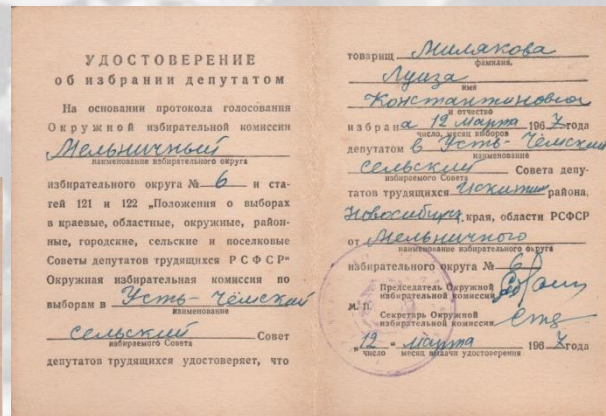 УДОСТОВЕРЕНИЕ
об избрании депутатом
На основании протокола голосования
Окружной избирательной комиссии
Мельничный
наименование избирательного округа
избирательного округа № 6 и ста-
тей 121 и 122 „Положения о выборах
в краевые, областные, окружные, район-
ные, городские, сельские и поселковые
Советы депутатов трудящихся РСФСР"
Окружная избирательная комиссия по
выборам в Усть-Чёмский
наименование
сельский Совет
избираемого Совета
депутатов трудящихся удостоверяет, что
товарищ Милякова
фамилия,
Луиза
имя
Константиновна
и отчество
избрана 12 марта 1967 года
число, месяц выборов
депутатом в Усть-Чёмский
наименование
сельский Совета депу-
избираемого Совета
татов трудящихся Искитим района,
Новосибирск, края, области РСФСР
от Мельничного
наименование избирательного округа
избирательного округа № 6
Председатель Окружной
избирательной комиссии
М. П.
Секретарь Окружной
избирательной комиссии
„12" марта 1967 года
число месяц выдачи удостоверения